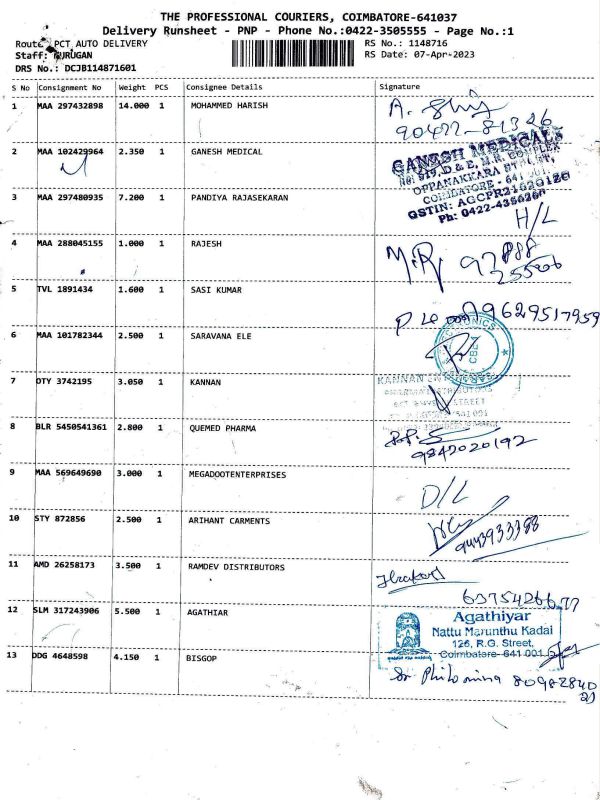 THE PROFESSIONAL COURIERS, COIMBATORE-641037
Delivery Runsheet - PNP - Phone No.:0422-3505555 - Page No.:1
Route: PCT AUTO DELIVERY
RS No.: 1148716
Staff: MURUGAN
RS Date: 07-Apr-2023
DRS No.: DCJB114871601
S No Consignment No Weight PCS Consignee Details Signature
1 MAA 297432898 14.000 1 MOHAMMED HARISH
90422-81326
2 MAA 102429964 2.350 1 GANESH MEDICAL
GANESH MEDICALS
OPPANAKKARA STREET,
COIMBATORE - 641 001
3 MAA 297480935 7.200 1 PANDIYA RAJASEKARAN
Ph: 0422-4356260
H/L
4 MAA 288045155 1.000 1 RAJESH
5 TVL 1891434 1.600 1 SASI KUMAR
9629517959
6 MAA 101782344 2.500 1 SARAVANA ELE
7 OTY 3742195 3.050 1 KANNAN
KANNAN
8 BLR 5450541361 2.800 1 QUEMED PHARMA
9842020192
9 MAA 569649690 3.000 1 MEGADOOTENTERPRISES
D/L
10 STY 872856 2.500 1 ARIHANT CARMENTS
9443933388
11 AMD 26258173 3.500 1 RAMDEV DISTRIBUTORS
6375426677
12 SLM 317243906 5.500 1 AGATHIAR
Agathiyar
Nattu Marunthu Kadai
126, R.G. Street,
Coimbatore- 641 001
13 DDG 4648598 4.150 1 BISGOP
Sr Philomina 80982840
21